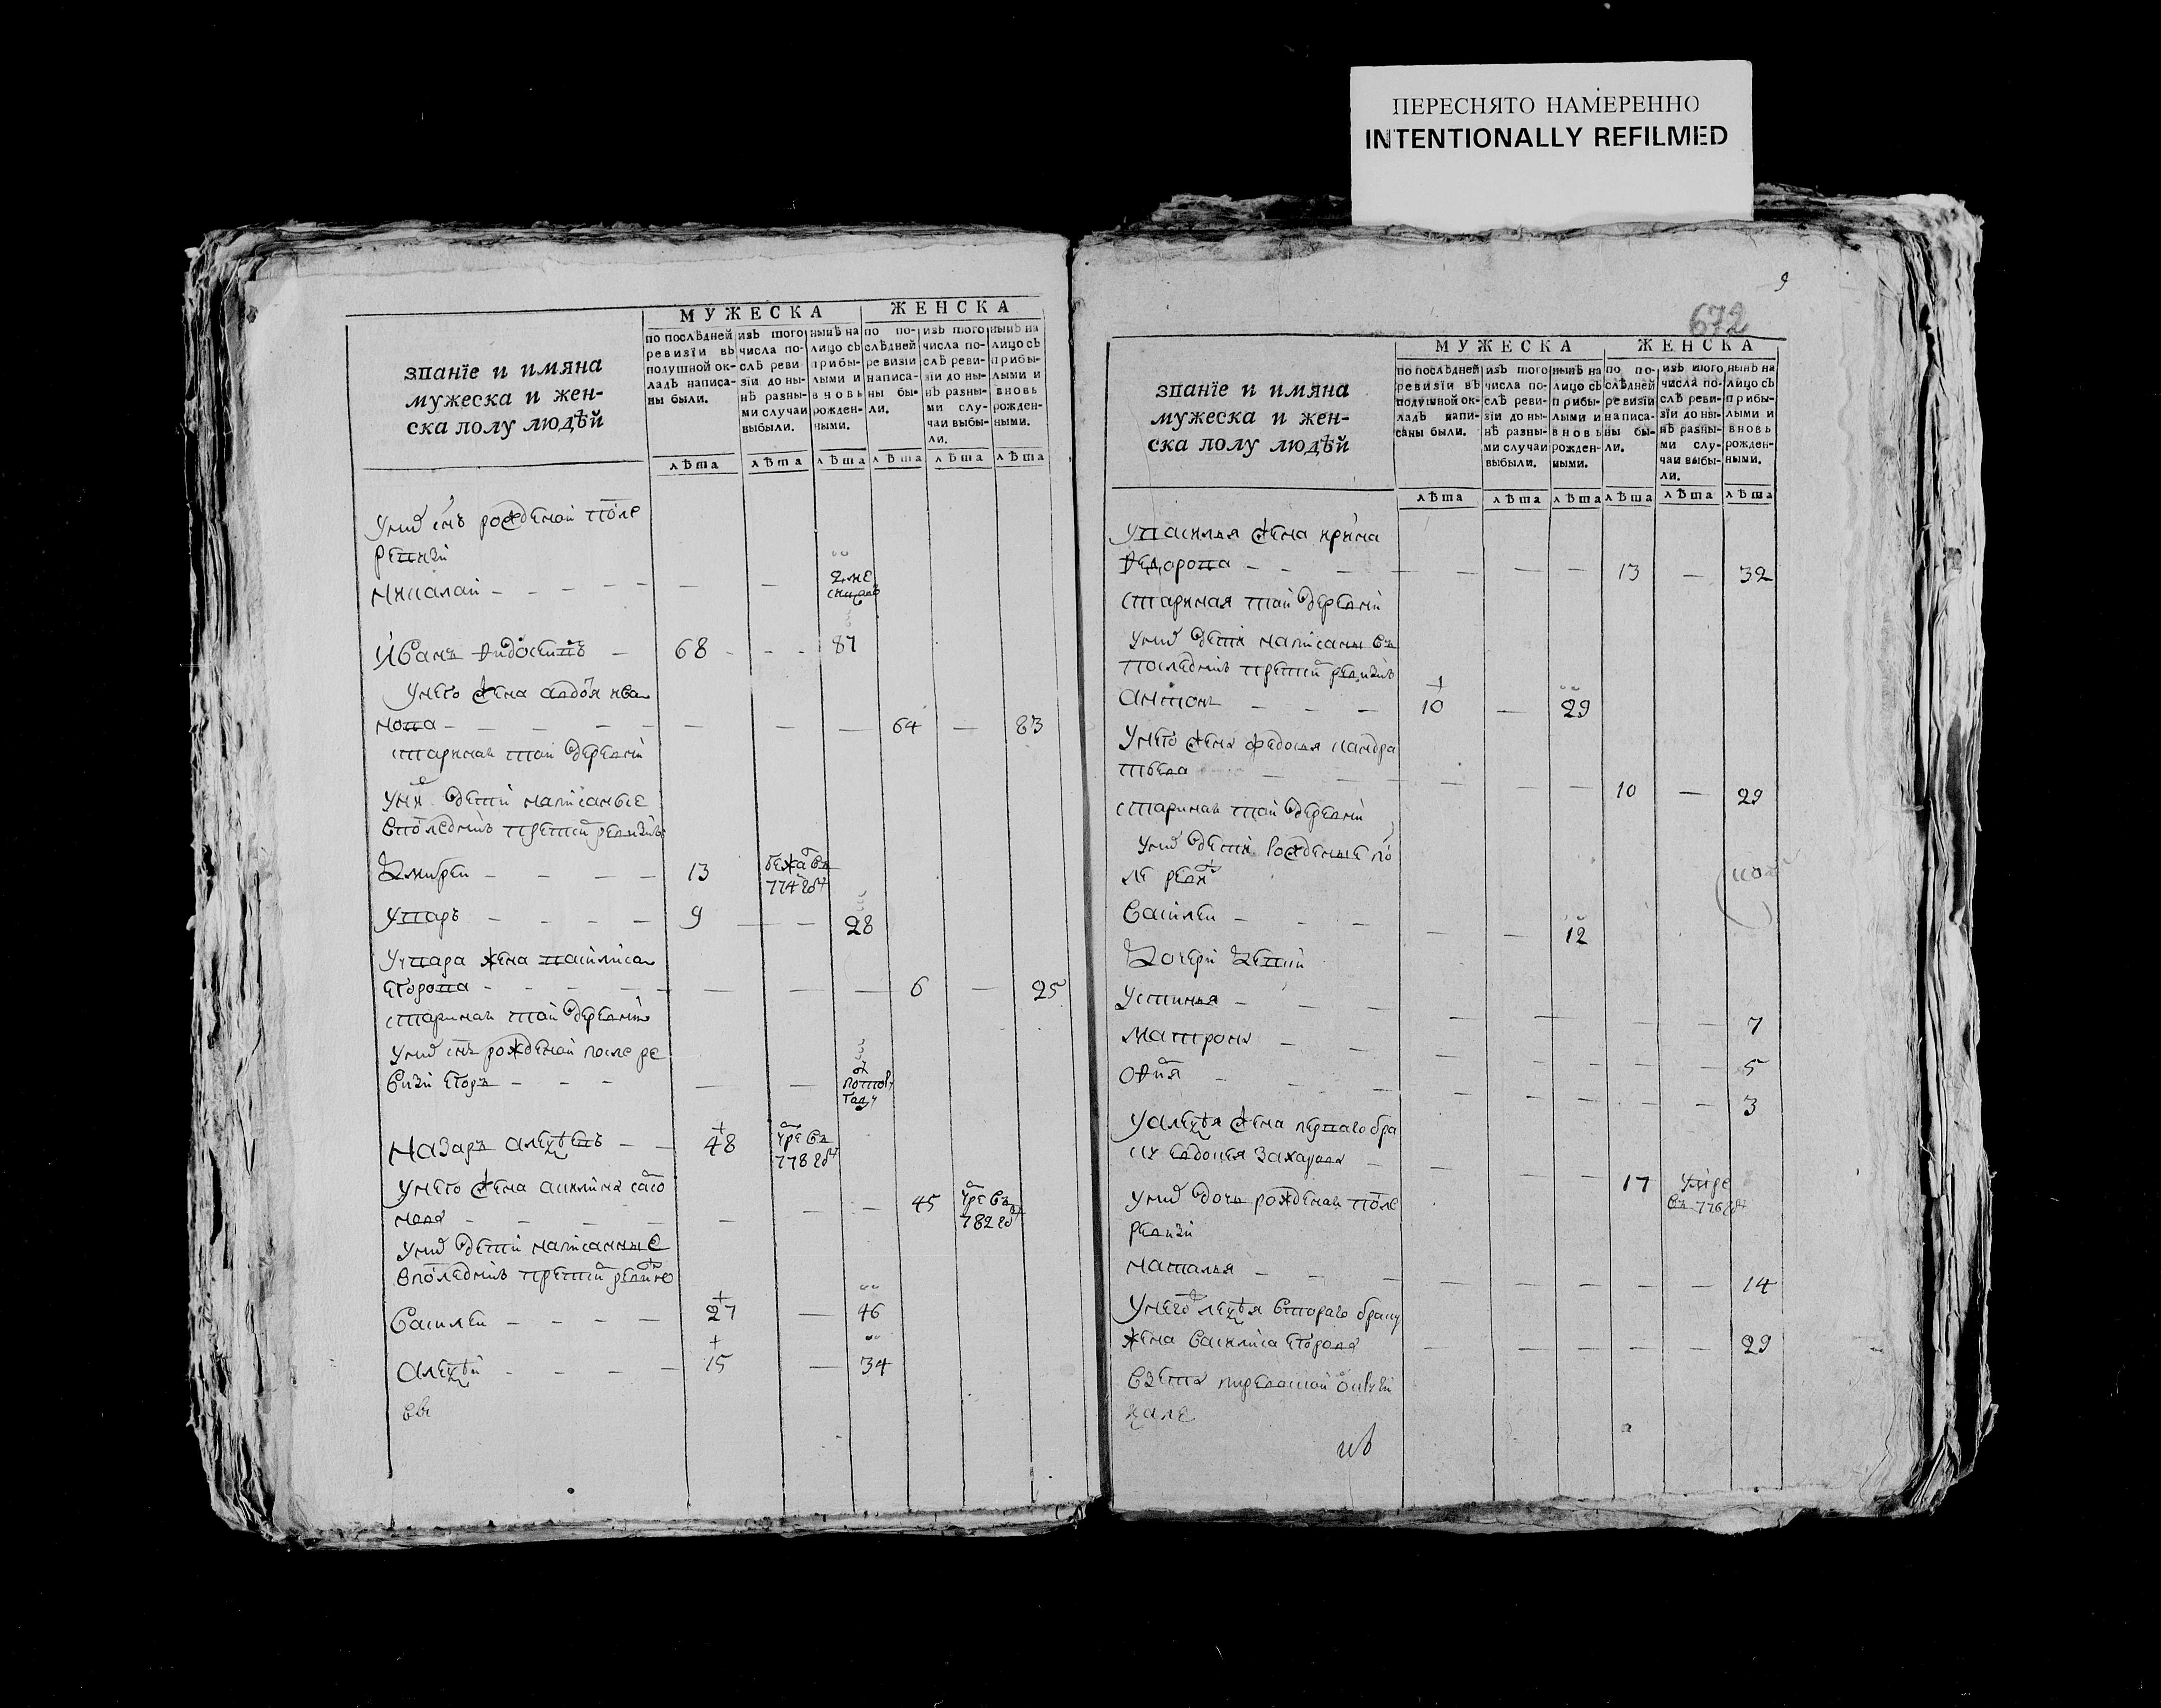 ПЕРЕСНЯТО НАМЕРЕННО
INTENTIONALLY REFILMED
званїе и имяна
мужеска и жен-
ска полу людѣй
МУЖЕСКА
ЖЕНСКА
по послѣдней
ревизїи въ
подушной ок-
ладъ написа-
ны были.
изъ того
числа по-
слѣ реви-
зїи до ны-
нѣ разны-
ми случаи
выбыли.
нынѣ на
лицо съ
прибы-
лыми и
вновь
рожден-
ными.
по по-
слѣдней
ревизїи
написа-
ны бы-
ли.
изъ того
числа по-
слѣ реви-
зїи до ны-
нѣ разны-
ми слу-
чаи выбы-
ли.
нынѣ на
лицо съ
прибы-
лыми и
вновь
рожден-
ными.
лѣта лѣта лѣта лѣта лѣта лѣта
у них снъ рожденой после
ревизи
Николай
Иванъ 68 87
у него жена авдотя ива
нова 64 83
старинная той деревни
у них дети написаные
в последней пред сей ревизиі
Андреи 13 бежа въ 774 году
Уваръ 9 28
у увара жена василиса
егорова 6 25
старинная той деревни
у них снъ рожденой после ре
визи егоръ полтора году
Назаръ алексеевъ 48 умре въ 778 году
у него жена акилина
45 умре въ 782 году
у них дети написанные
в последней пред сей ревизиі
Василеи 27 46
алексѣй 15 34
672
9
званїе и имяна
мужеска и жен-
ска полу людѣй
МУЖЕСКА
ЖЕНСКА
по послѣдней
ревизїи въ
подушной ок-
ладъ напи-
саны были.
изъ того
числа по-
слѣ реви-
зїи до ны-
нѣ разны-
ми случаи
выбыли.
нынѣ на
лицо съ
прибы-
лыми и
вновь
рожден-
ными.
по по-
слѣдней
ревизїи
написа-
ны бы-
ли.
изъ того
числа по-
слѣ реви-
зїи до ны-
нѣ разны-
ми слу-
чаи выбы-
ли.
нынѣ на
лицо съ
прибы-
лыми и
вновь
рожден-
ными.
лѣта лѣта лѣта лѣта лѣта лѣта
у василья жена ирина
ѳедорова 13 32
старинная той деревни
у них дети написаны въ
последней пред сей ревизиі
антонъ 10 29
у него жена федосья кондра
тьева 10 29
старинная той деревни
у них дети рожденые по
сле ревизи
Василеи 12
Дочери девки
Устинья 7
Матрона 5
Офимя 3
у алексѣя жена перваго бра
ку евдокея захарова 17 умре въ 776 году
у них дочь рожденая после
ревизи
наталья 14
у него алексѣя втораго браку
жена василиса егорова 29
взета